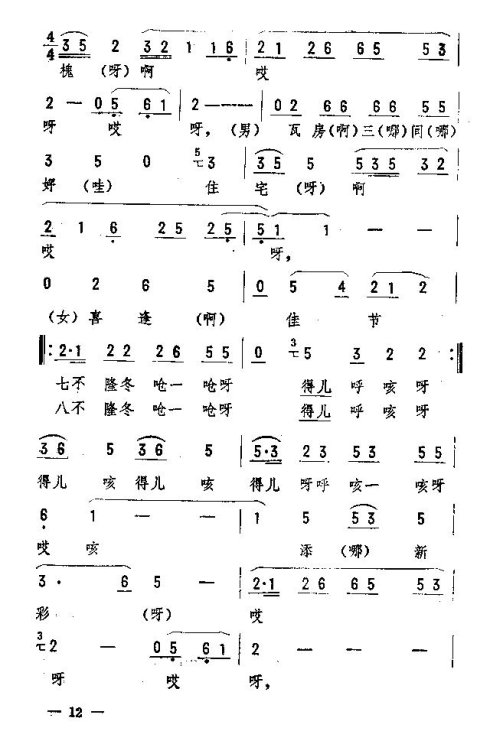 4/4 35 2 32 1 16 | 21 26 65 53 |
槐 (呀)啊 哎
2 — 05 61 | 2 — — — | 02 66 66 55 |
呀 哎 呀, (男) 瓦房(啊)三(哪)间(哪)
3 5 0 5 3 | 35 5 535 32 |
好 (哇) 住 宅 (呀) 啊
2 1 6 25 25 | 51 1 — — |
哎 呀,
0 2 6 5 | 0 5 4 21 2 |
(女) 喜 逢 (啊) 佳 节
‖: 2·1 22 26 55 | 0 3 5 3 2 2 :‖
七不 隆冬 呛一 呛呀 得儿 呼 咳 呀
八不 隆冬 呛一 呛呀 得儿 呼 咳 呀
36 5 36 5 | 5·3 23 53 53 |
得儿 咳 得儿 咳 得儿 呀呼 咳一 咳呀
6 1 — — | 1 5 53 5 |
哎 咳 添 (哪) 新
3· 6 5 — | 2·1 26 65 53 |
彩 (呀) 哎
3 2 — 05 61 | 2 — — |
呀 哎 呀,
— 12 —